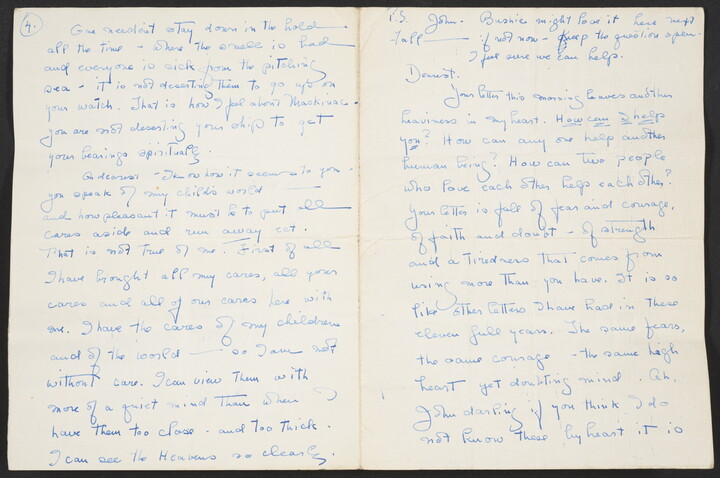 4.
One needn't stay down in the hold
all the time - where the smell is bad
and everyone is sick from the pitching
sea - it is not deserting them to go up on
your watch. That is how I feel about Mackinac -
you are not deserting your ship to get
your bearings spiritually.
And dearest - I know how it seems to you -
you speak of my child's world
and how pleasant it must be to put all
cares aside and run away ect.
That is not true of me. First of all
I have brought all my cares, all your
cares and all of our cares here with
me. I have the cares of my children
and of the world - so I am not
without care. I can view them with
more of a quiet mind than when I
have them too close - and too thick.
I can see the Heavens so clearly.
P.S. John. Bushie might love it here next
fall - if not now - Keep the question open.
I feel sure we can help.
Dearest.
Your letter this morning leaves another
heaviness in my heart. How can I help
you? How can any one help another
human being? How can two people
who love each other help each other?
Your letter is full of fear and courage,
of faith and doubt - of strength
and a tiredness that comes from
using more than you have. It is so
like other letters I have had in these
eleven full years. The same fears,
the same courage - the same high
heart yet doubting mind. Oh,
John darling if you think I do
not know these by heart it is